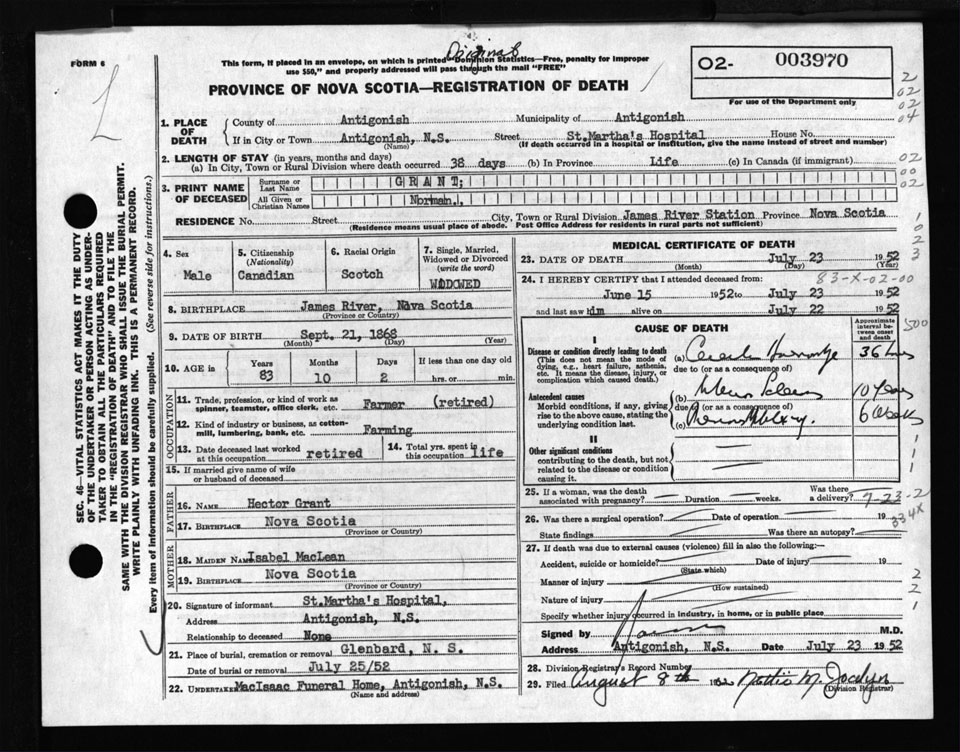 Original
FORM 6
This form, if placed in an envelope, on which is printed "Dominion Statistics—Free, penalty for improper
use $50," and properly addressed will pass through the mail "FREE"
02- 003970
For use of the Department only
PROVINCE OF NOVA SCOTIA—REGISTRATION OF DEATH
2
02
02
04
1. PLACE OF DEATH
County of Antigonish Municipality of Antigonish
If in City or Town Antigonish, N.S. Street St.Martha's Hospital House No.
(Name) (If death occurred in a hospital or institution, give the name instead of street and number)
2. LENGTH OF STAY (in years, months and days)
(a) In City, Town or Rural Division where death occurred 38 days (b) In Province Life (c) In Canada (if immigrant)
02
00
02
3. PRINT NAME OF DECEASED
Surname or Last Name GRANT;
All Given or Christian Names Norman.,
RESIDENCE No. Street City, Town or Rural Division James River Station Province Nova Scotia
(Residence means usual place of abode. Post Office Address for residents in rural parts not sufficient)
SEC. 46—VITAL STATISTICS ACT MAKES IT THE DUTY
OF THE UNDERTAKER OR PERSON ACTING AS UNDER-
TAKER TO OBTAIN ALL THE PARTICULARS REQUIRED
IN THE "REGISTRATION OF DEATH" AND TO FILE THE
SAME WITH THE DIVISION REGISTRAR WHO SHALL ISSUE THE BURIAL PERMIT.
WRITE PLAINLY WITH UNFADING INK. THIS IS A PERMANENT RECORD.
Every item of information should be carefully supplied. (See reverse side for instructions.)
4. Sex
Male
5. Citizenship
(Nationality)
Canadian
6. Racial Origin
Scotch
7. Single, Married,
Widowed or Divorced
(write the word)
WIDOWED
8. BIRTHPLACE James River, Nova Scotia
(Province or Country)
9. DATE OF BIRTH Sept. 21, 1868
(Month) (Day) (Year)
10. AGE in
Years 83
Months 10
Days 2
If less than one day old
hrs. or min.
OCCUPATION
11. Trade, profession, or kind of work as
spinner, teamster, office clerk, etc. Farmer (retired)
12. Kind of industry or business, as cotton-
mill, lumbering, bank, etc. Farming
13. Date deceased last worked
at this occupation retired
14. Total yrs. spent in
this occupation life
15. If married give name of wife
or husband of deceased
FATHER
16. Name Hector Grant
17. BIRTHPLACE Nova Scotia
(Province or Country)
MOTHER
18. MAIDEN NAME Isabel MacLean
19. BIRTHPLACE Nova Scotia
(Province or Country)
20. Signature of informant St.Martha's Hospital,
Address Antigonish, N.S.
Relationship to deceased None
21. Place of burial, cremation or removal Glenbard, N. S.
Date of burial or removal July 25/52
22. UNDERTAKER MacIsaac Funeral Home, Antigonish, N.S.
(Name and address)
MEDICAL CERTIFICATE OF DEATH
23. DATE OF DEATH July 23 1952
(Month) (Day) (Year)
83-X-02-00
24. I HEREBY CERTIFY that I attended deceased from:
June 15 1952 to July 23 1952
and last saw him alive on July 22 1952
CAUSE OF DEATH
Approximate
interval be-
tween onset
and death
I
Disease or condition directly leading to death
(This does not mean the mode of
dying, e.g., heart failure, asthenia,
etc. It means the disease, injury, or
complication which caused death.)
(a) 36 hrs
due to (or as a consequence of)
Antecedent causes
Morbid conditions, if any, giving
rise to the above cause, stating the
underlying condition last.
(b) 10 years
due to (or as a consequence of)
(c) 6 weeks
II
Other significant conditions
contributing to the death, but not
related to the disease or condition
causing it.
25. If a woman, was the death
associated with pregnancy? Duration weeks. Was there
a delivery?
7-23-2
334X
26. Was there a surgical operation? Date of operation 19
State findings Was there an autopsy?
27. If death was due to external causes (violence) fill in also the following:—
Accident, suicide or homicide? Date of injury 19
(State which)
Manner of injury
(How sustained)
Nature of injury
Specify whether injury occurred in industry, in home, or in public place
Signed by M.D.
Address Antigonish, N.S. Date July 23 1952
28. Division Registrar's Record Number
29. Filed August 8th 1952 Nattie M. Jocelyn
(Division Registrar)